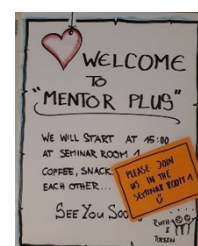 WELCOME
TO
"MENTOR PLUS"
WE WILL START AT 15:00
AT SEMINAR ROOM 1
COFFEE, SNACK
EACH OTHER...
SEE YOU SOO
PLEASE JOIN
US IN THE
SEMINAR ROOM 1
&
TORBEN